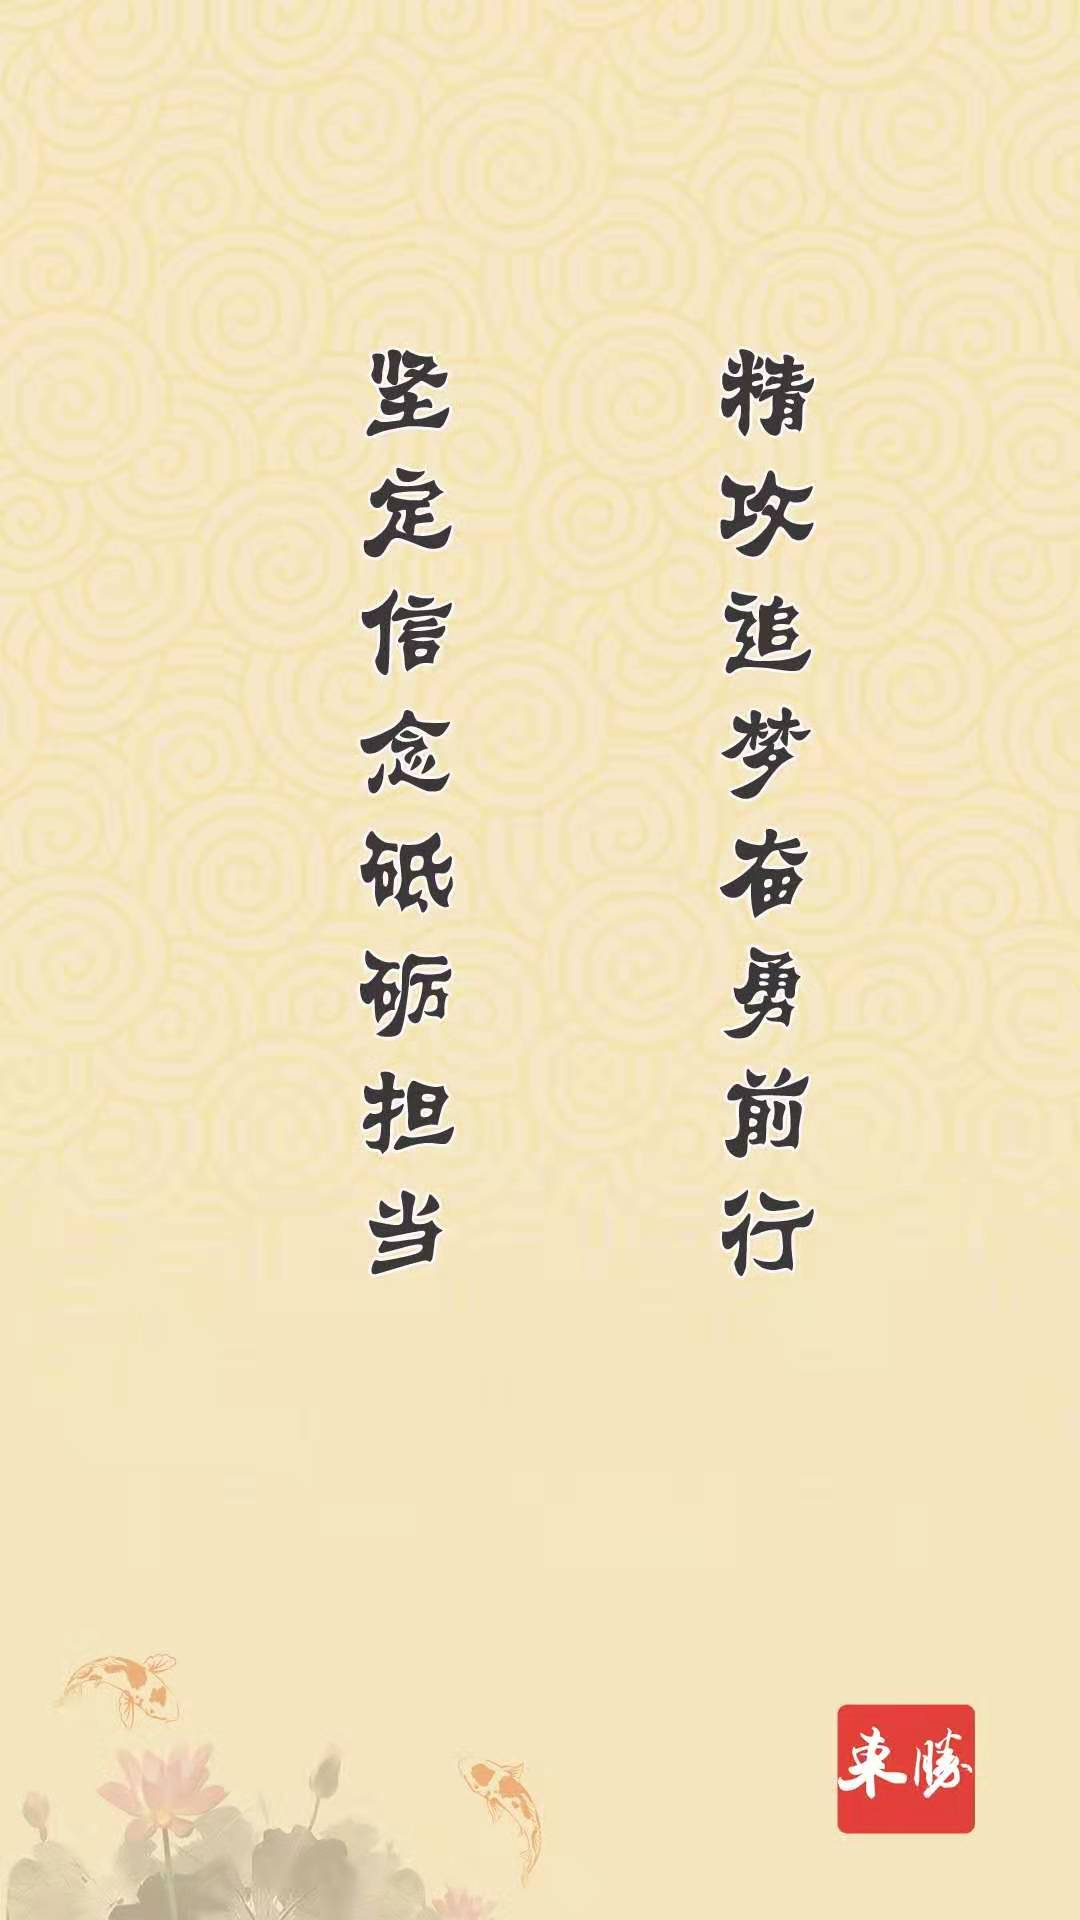 精攻追梦奋勇前行
坚定信念砥砺担当
東勝